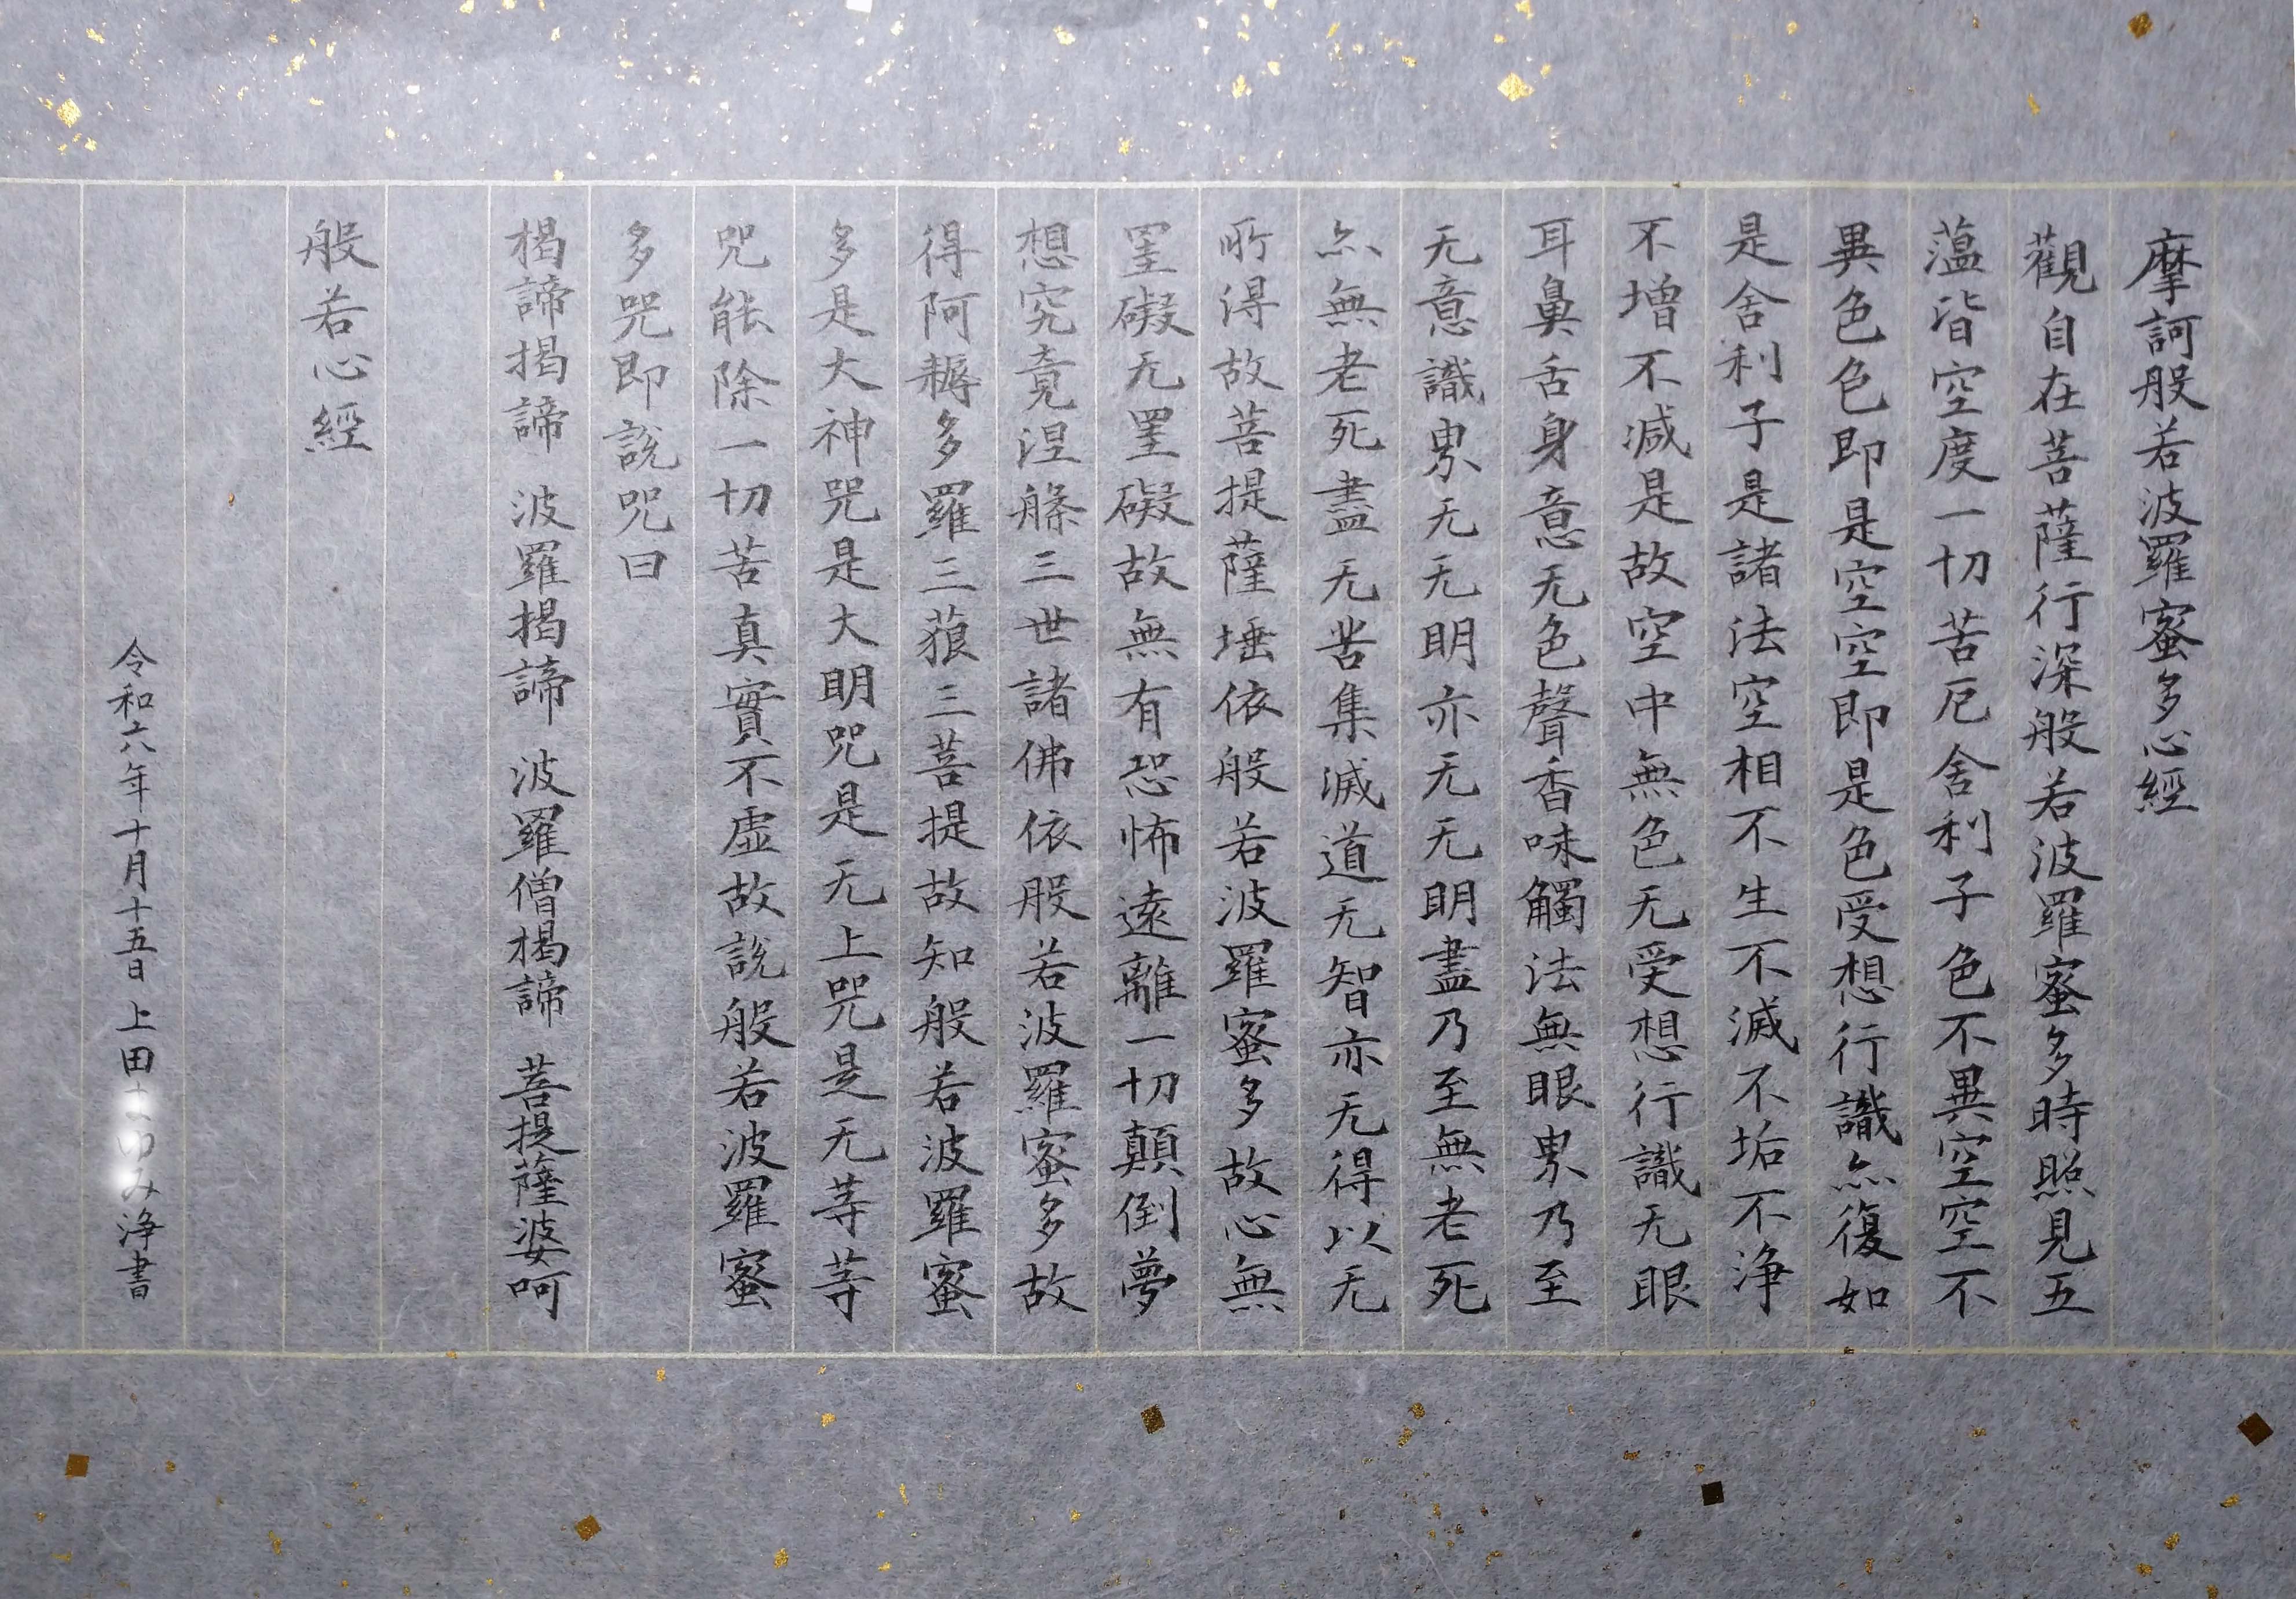 摩訶般若波羅蜜多心經
觀自在菩薩行深般若波羅蜜多時照見五
蕰皆空度一切苦厄舍利子色不異空空不
異色色即是空空即是色受想行識亦復如
是舍利子是諸法空相不生不滅不垢不浄
不增不減是故空中無色无受想行識无眼
耳鼻舌身意无色聲香味觸法無眼界乃至
无意識界无无明亦无无明盡乃至無老死
亦無老死盡无苦集滅道无智亦无得以无
所得故菩提薩埵依般若波羅蜜多故心無
罣礙无罣礙故無有恐怖遠離一切顛倒夢
想究竟涅槃三世諸佛依般若波羅蜜多故
得阿耨多羅三藐三菩提故知般若波羅蜜
多是大神咒是大明咒是无上咒是无等等
咒能除一切苦真實不虛故説般若波羅蜜
多咒即説咒曰
揭諦揭諦 波羅揭諦 波羅僧揭諦 菩提薩婆呵
般若心經
令和六年十月十五日 上田 み 浄書